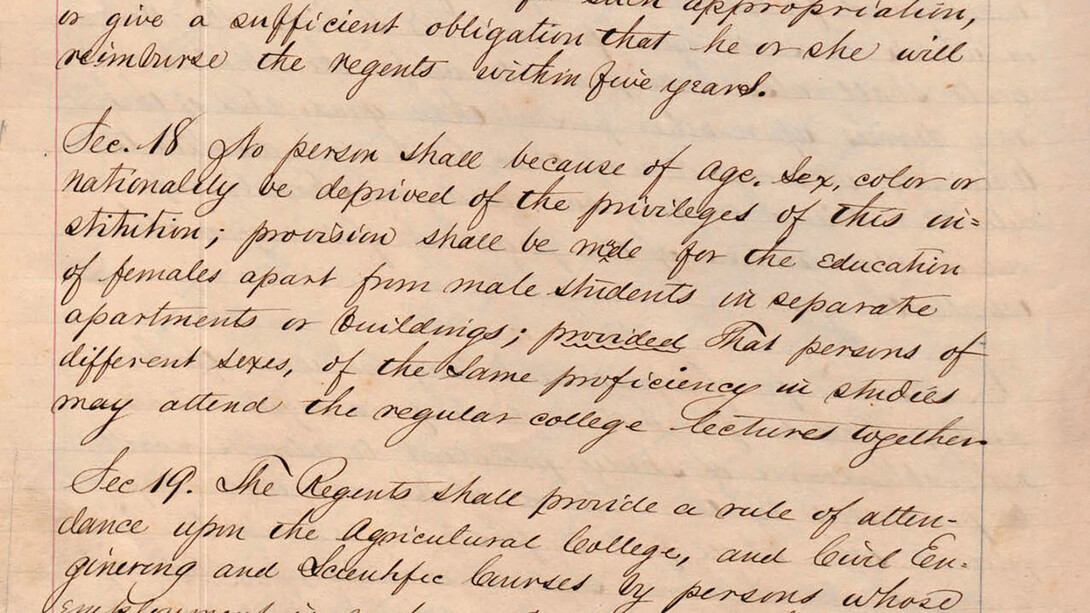 such appropriation,
or give a sufficient obligation that he or she will
reimburse the regents within five years.
Sec. 18 No person shall because of age, sex, color or
nationality be deprived of the privileges of this in=
stitition; provision shall be made for the education
of females apart from male students in separate
apartments or buildings; provided That persons of
different sexes, of the same proficiency in studies
may attend the regular college lectures together.
Sec 19. The Regents shall provide a rule of atten-
dance upon the Agricultural College, and Civil En-
ginering and Scientific Courses by persons whose
Employment